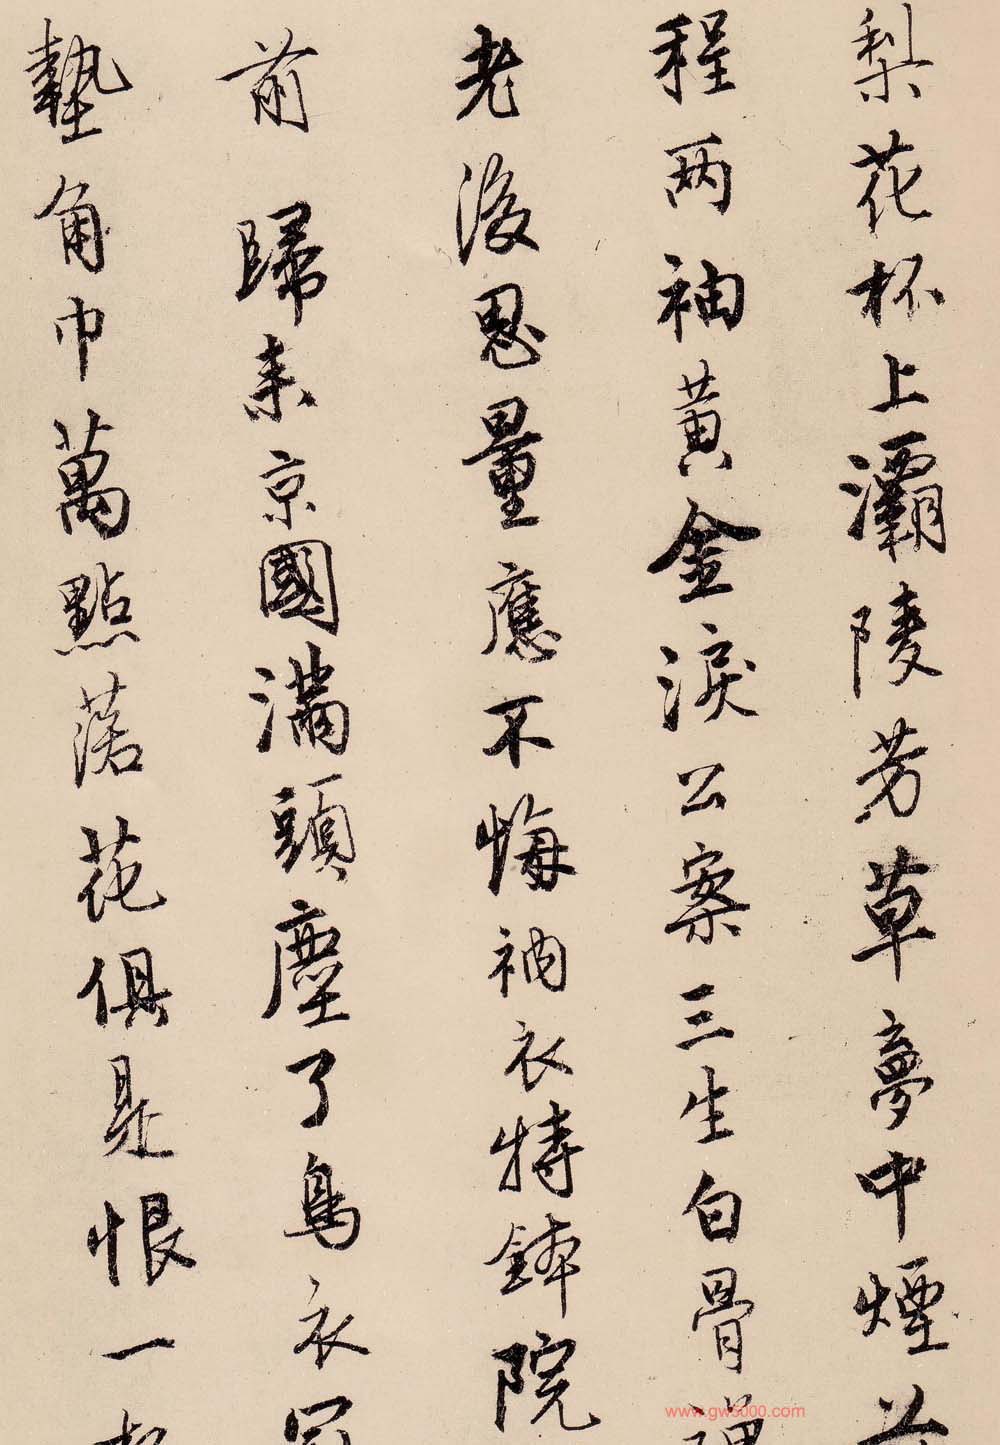 梨花杯上灞陵芳草夢中煙前
程两袖黄金淚公案三生白骨禪
老後思量應不悔衲衣持鉢院
前 歸来京國满頭塵了烏衣
墊角巾萬點落花俱是恨一
www.gw5000.com